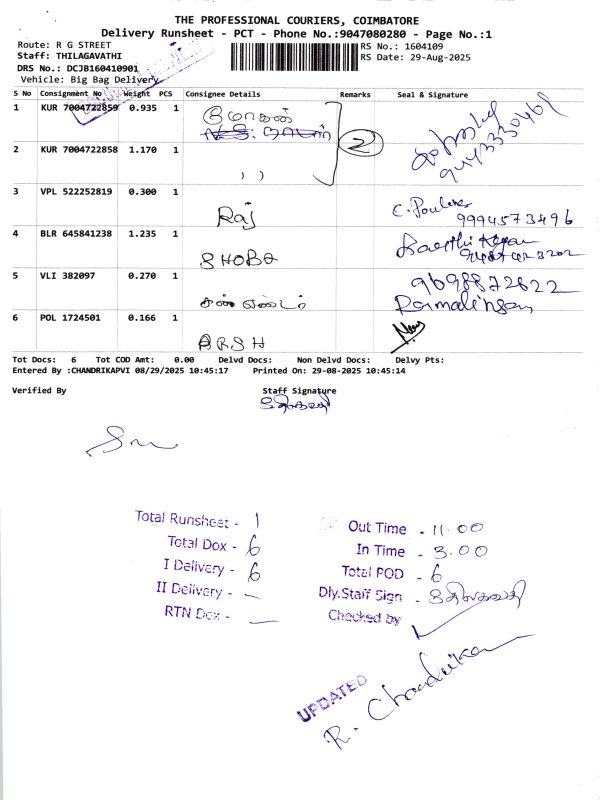 THE PROFESSIONAL COURIERS, COIMBATORE
Delivery Runsheet - PCT - Phone No.:9047080280 - Page No.:1
Route: R G STREET
RS No.: 1604109
Staff: THILAGAVATHI
RS Date: 29-Aug-2025
DRS No.: DCJB160410901
Vehicle: Big Bag Delivery
S No Consignment No Weight PCS Consignee Details Remarks Seal & Signature
1 KUR 7004722859 0.935 1 மோகன் 2
9443330469
2 KUR 7004722858 1.170 1 ))
3 VPL 522252819 0.300 1 Raj
9994573496
4 BLR 645841238 1.235 1 SHOBA
5 VLI 382097 0.270 1 9698872622
Ramalingam
6 POL 1724501 0.166 1 ARSH
Tot Docs: 6 Tot COD Amt: 0.00 Delvd Docs: Non Delvd Docs: Delvy Pts:
Entered By :CHANDRIKAPVI 08/29/2025 10:45:17 Printed On: 29-08-2025 10:45:14
Verified By Staff Signature
Total Runsheet - 1
Total Dox - 6
I Delivery - 6
II Delivery - —
RTN Dox - —
Out Time - 11.00
In Time - 3.00
Total POD - 6
Dly.Staff Sign - திலகவதி
Checked by
UPDATED
R. Chandrika